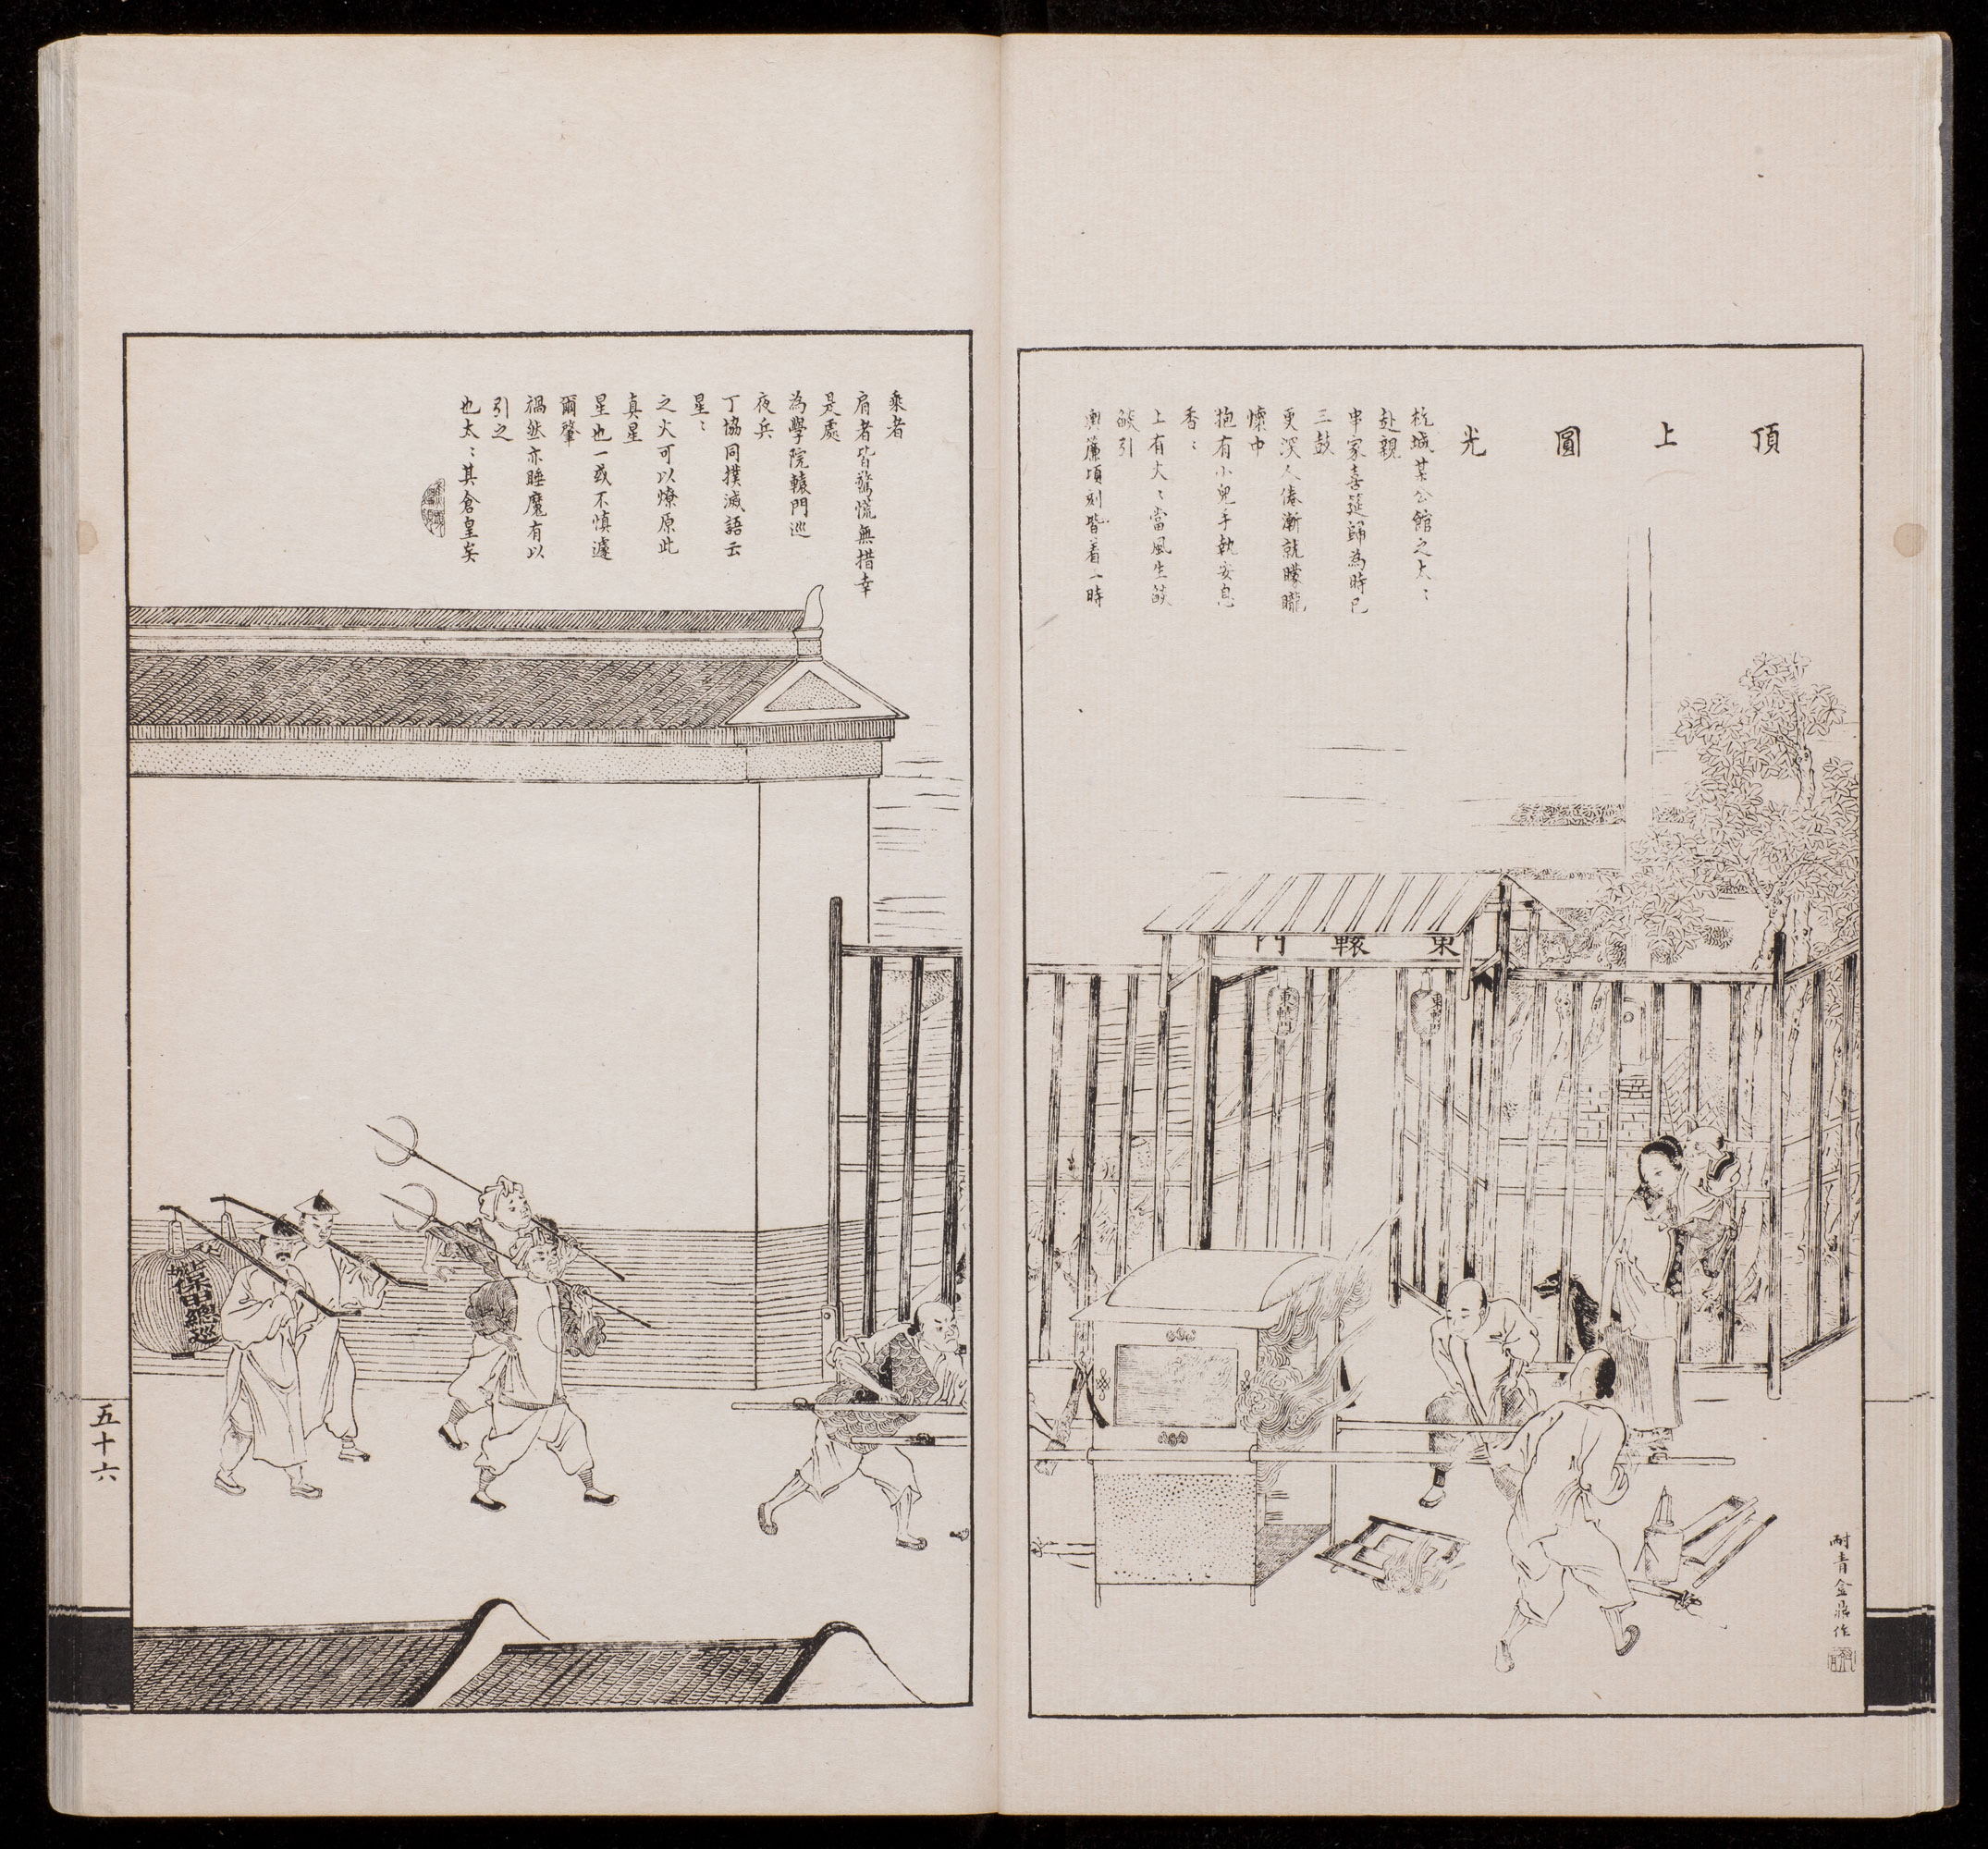 頂上圓光
杭城某公館之太〻
赴親
串家喜筵歸為時已
三鼓
更深人倦漸就朦朧
懷中
抱有小兒手執安息
香〻
上有火〻當風生燄
燄引
輿簾頃刻皆着一時
乘者
肩者皆驚慌無措幸
是處
為學院轅門巡
夜兵
丁協同撲滅語云
星〻
之火可以燎原此
真星
星也一或不慎遽
爾肇
禍然亦睡魔有以
引之
也太〻其倉皇矣
東轅門
東轅門
保甲總巡
耐青金鼎作
五十六